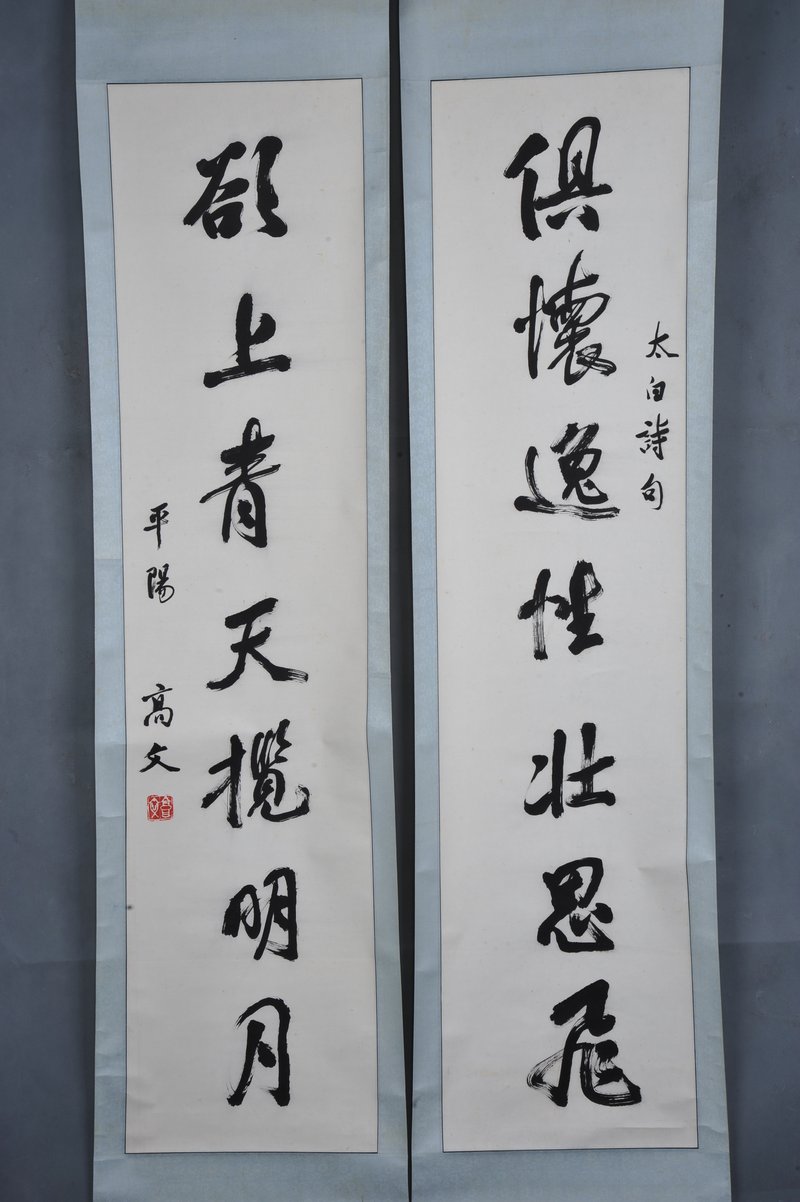 太白詩句
俱懷逸性壯思飛
欲上青天攬明月
平陽 高文
高文